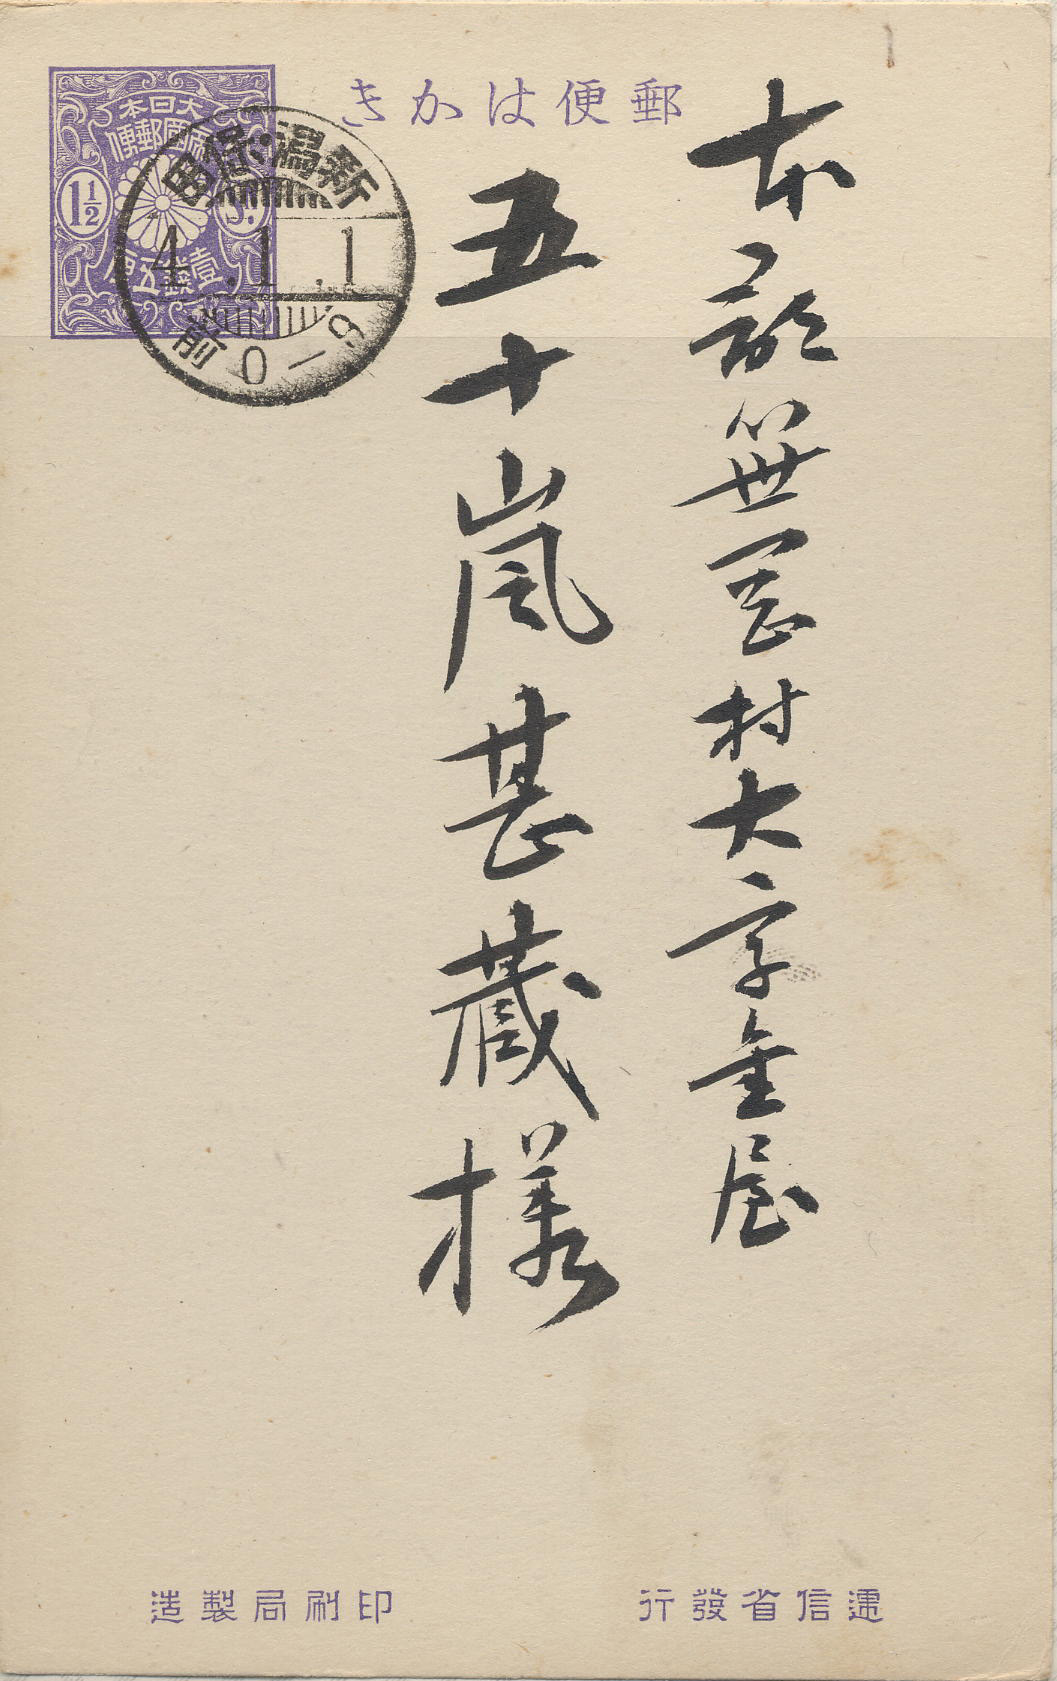 郵便はかき
大日本
帝國郵便
1½
壹錢五厘
新潟・保田
4.1.1
前0-9
本郡笹岡村大字金屋
五十嵐甚蔵様
遞信省發行
印刷局製造